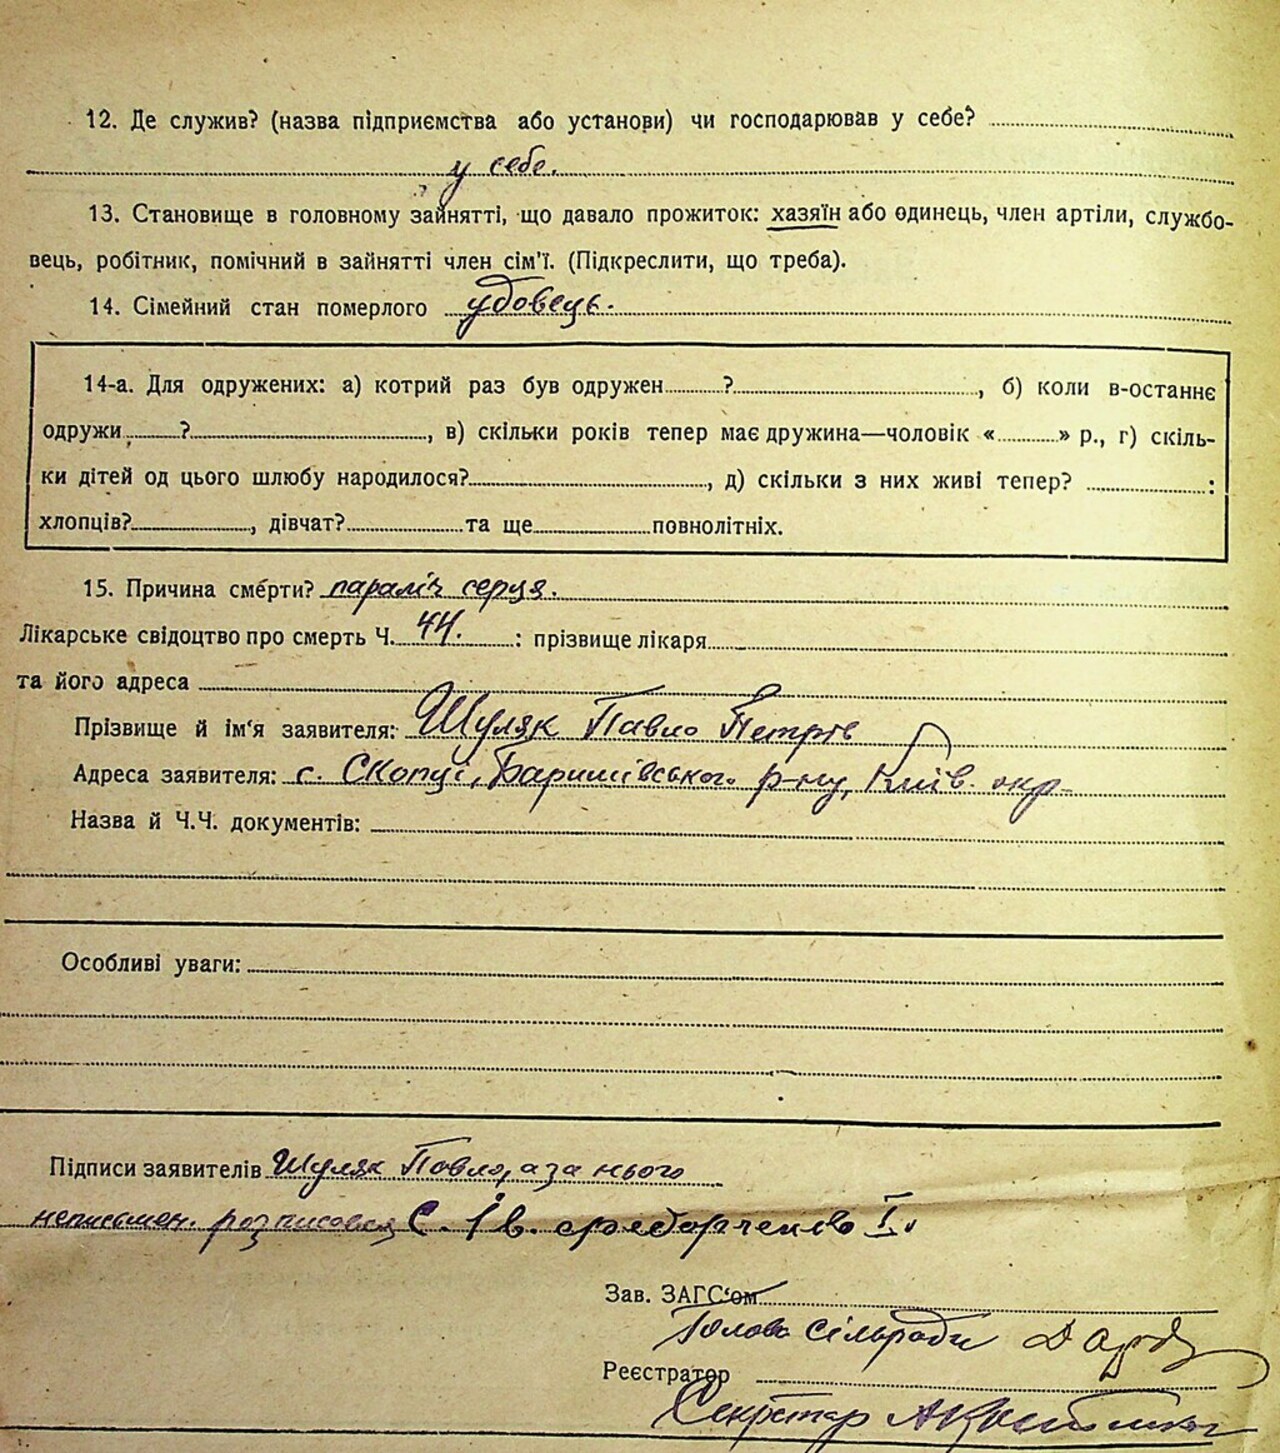 12. Де служив? (назва підприємства або установи) чи господарював у себе?
у себе.
13. Становище в головному зайнятті, що давало прожиток: хазяїн або одинець, член артіли, службо-
вець, робітник, помічний в зайнятті член сім'ї. (Підкреслити, що треба).
14. Сімейний стан померлого удовець.
14-а. Для одружених: а) котрий раз був одружен ? , б) коли в-останнє
одружи ? , в) скільки років тепер має дружина—чоловік « » р., г) скіль-
ки дітей од цього шлюбу народилося? , д) скільки з них живі тепер? :
хлопців? , дівчат? та ще повнолітніх.
15. Причина смерти? параліч серця.
Лікарське свідоцтво про смерть Ч. 44. : прізвище лікаря
та його адреса
Прізвище й ім'я заявителя: Шуляк Павло Петрів
Адреса заявителя: с. Скопці, Баришівського р-ну, Київ. окр-
Назва й Ч.Ч. документів:
Особливі уваги:
Підписи заявителів Шуляк Павло, а за нього
неписьмен. розписовся С. Ів. I.
Зав. ЗАГС'ом
Голова сільради
Реєстратор
Секретар